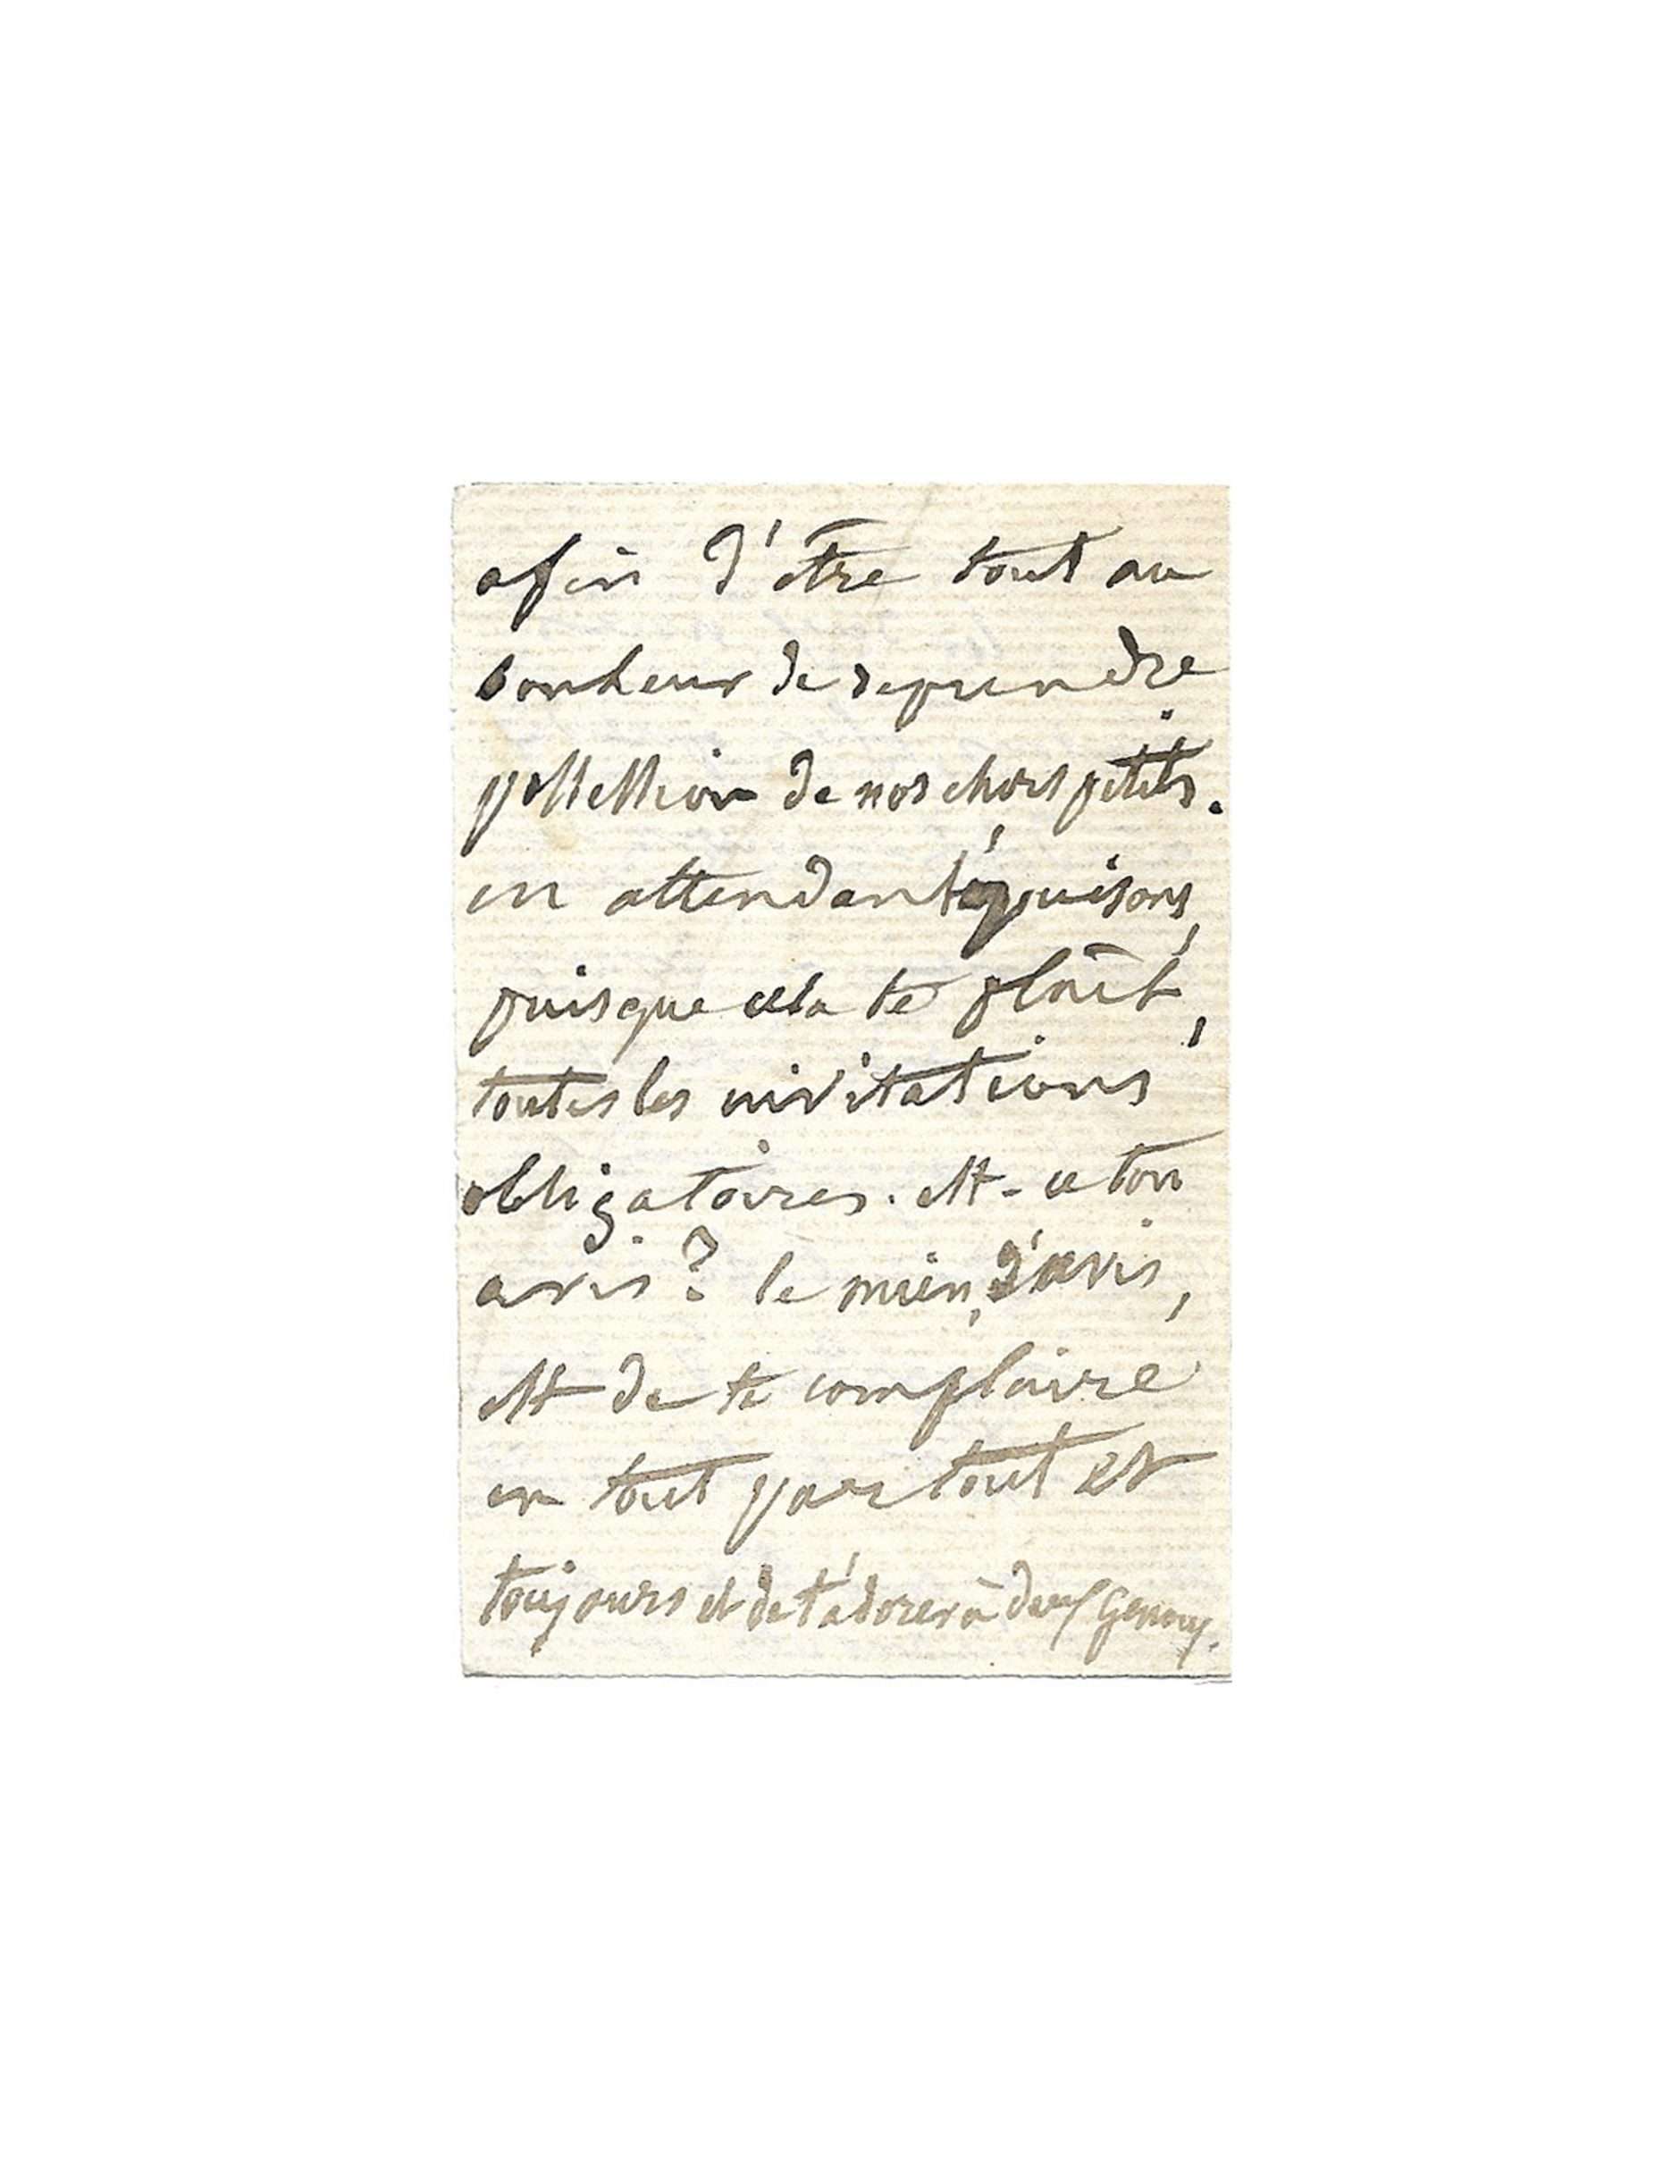 afin d'être tout au
bonheur de reprendre
possession de nos chers petits.
en attendant, épuisons,
puisque cela te plaît,
toutes les invitations
obligatoires. est-ce ton
avis ? le mien, d'avis,
est de te complaire
en tout partout et
toujours et de t'adorer à deux genoux.